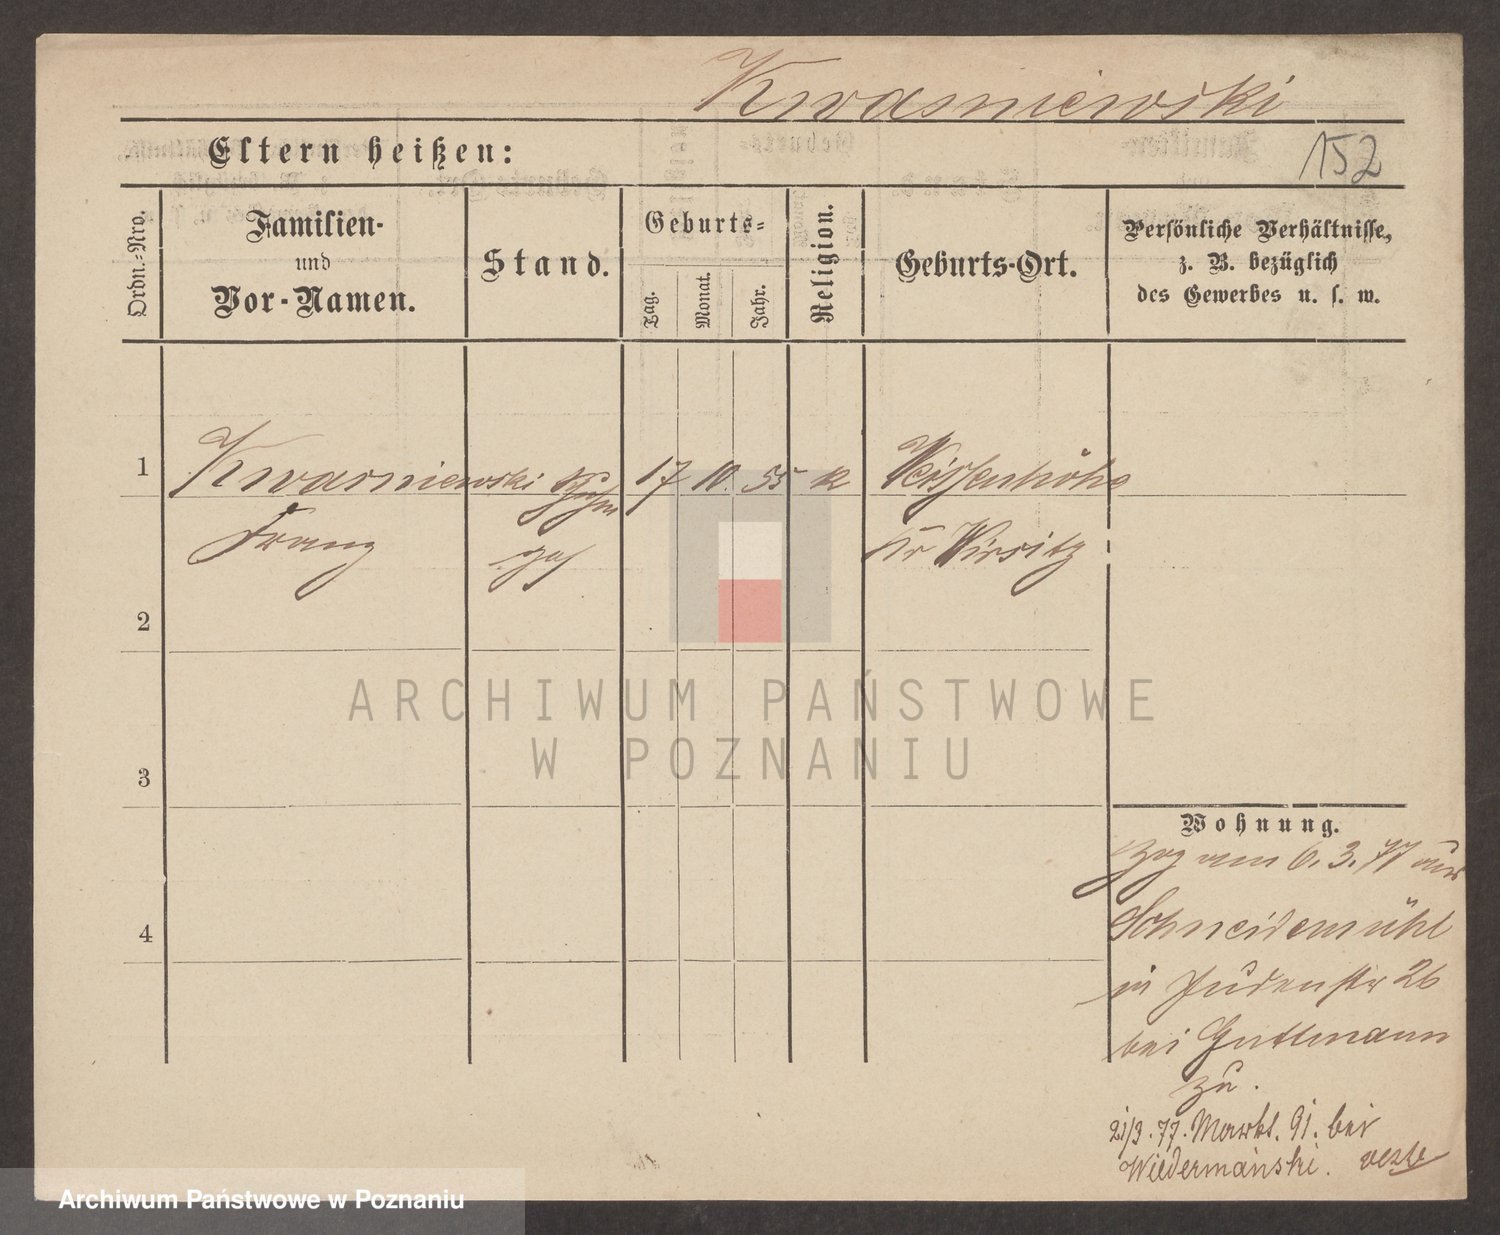 Kwasniewski
Eltern heißen:
152
Ordn.-Nro.
Familien-
und
Vor-Namen.
Stand.
Geburts-
Tag.
Monat.
Jahr.
Religion.
Geburts-Ort.
Persönliche Verhältnisse,
z. B. bezüglich
des Gewerbes u. s. w.
1 Kwasniewski 17 10. 55 k Weissenhöhe
Franz Kr Wirsitz
2
3
4
Wohnung.
Zog am 6. 3. 77 aus
Schneidemühl
in Judenstr 26
bei Guttmann
zu.
21/3. 77. Markt. 91. bei
Wiedermanski.
ARCHIWUM PAŃSTWOWE
W POZNANIU
Archiwum Państwowe w Poznaniu